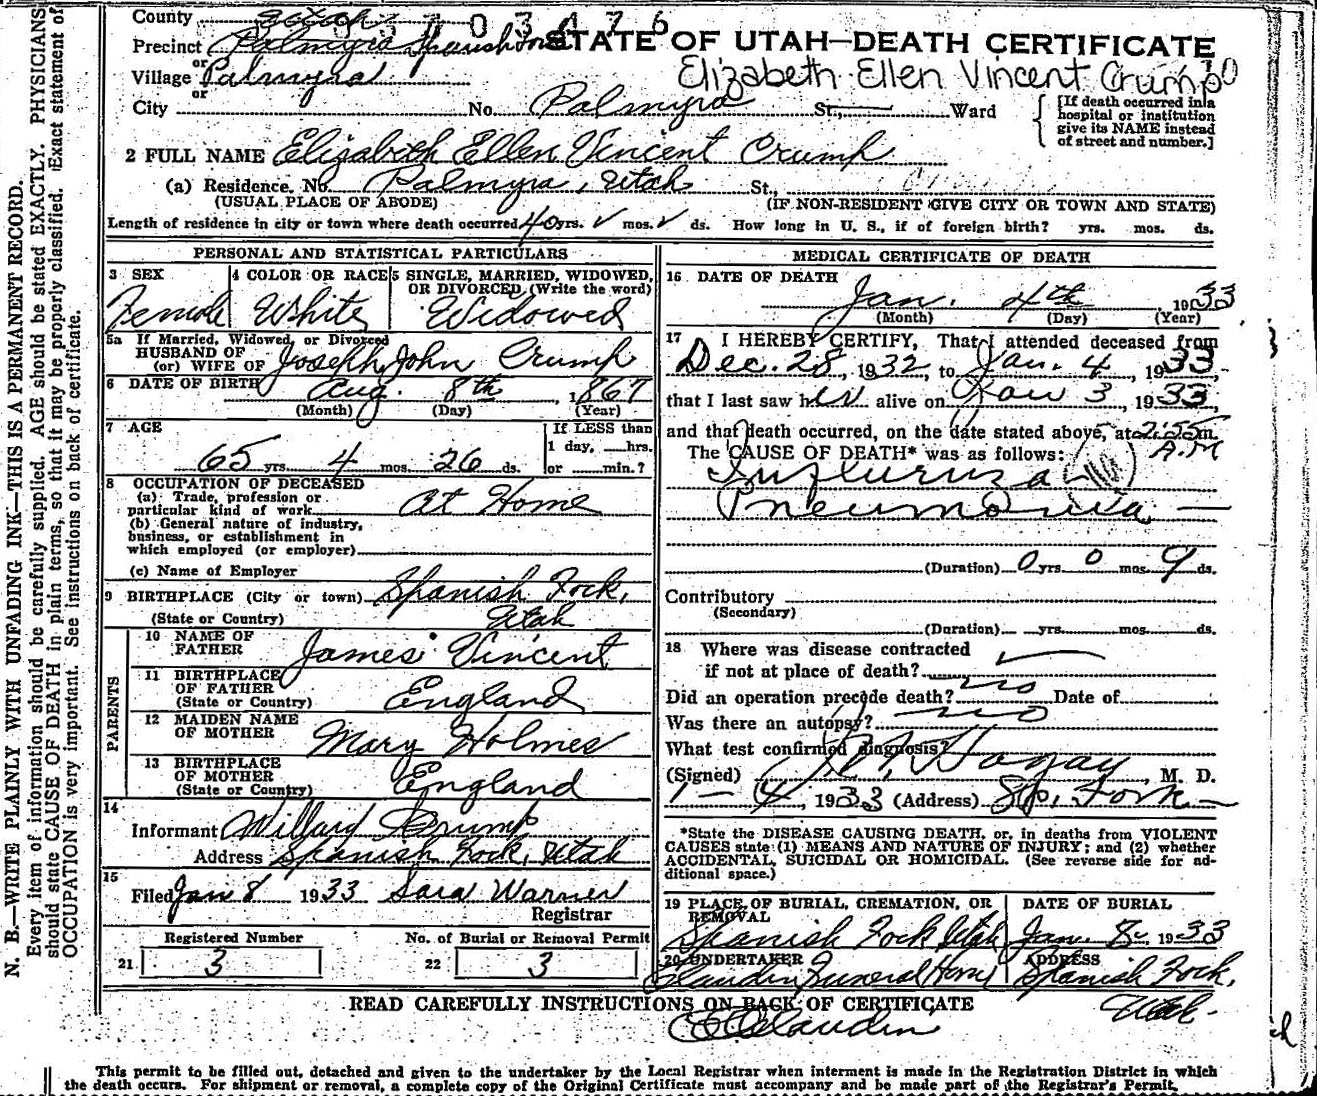 County Utah 3 3 0 3 4 7 6
Precinct Palmyra Spanish Fork
STATE OF UTAH—DEATH CERTIFICATE
or
Village Palmyra
Elizabeth Ellen Vincent Crump
or
City No. Palmyra St., Ward
[If death occurred in a hospital or institution give its NAME instead of street and number.]
2 FULL NAME Elizabeth Ellen Vincent Crump
(a) Residence. No. Palmyra, Utah St.,
(USUAL PLACE OF ABODE) (IF NON-RESIDENT GIVE CITY OR TOWN AND STATE)
Length of residence in city or town where death occurred 40 yrs. ✓ mos. ✓ ds. How long in U. S., if of foreign birth? yrs. mos. ds.
PERSONAL AND STATISTICAL PARTICULARS
3 SEX Female
4 COLOR OR RACE White
5 SINGLE, MARRIED, WIDOWED, OR DIVORCED (Write the word) Widowed
5a If Married, Widowed, or Divorced
HUSBAND OF
(or) WIFE OF Joseph John Crump
6 DATE OF BIRTH Aug. 8th, 1867
(Month) (Day) (Year)
7 AGE
65 yrs. 4 mos. 26 ds.
If LESS than
1 day, hrs.
or min.?
8 OCCUPATION OF DECEASED
(a) Trade, profession or
particular kind of work At Home
(b) General nature of industry,
business, or establishment in
which employed (or employer)
(c) Name of Employer
9 BIRTHPLACE (City or town) Spanish Fork,
(State or Country) Utah
PARENTS
10 NAME OF FATHER James Vincent
11 BIRTHPLACE OF FATHER (State or Country) England
12 MAIDEN NAME OF MOTHER Mary Holmes
13 BIRTHPLACE OF MOTHER (State or Country) England
14
Informant Willard Crump
Address Spanish Fork, Utah
15
Filed Jan 8 1933 Sara Warner
Registrar
21 Registered Number 3
22 No. of Burial or Removal Permit 3
MEDICAL CERTIFICATE OF DEATH
16 DATE OF DEATH
Jan. 4th 1933
(Month) (Day) (Year)
17 I HEREBY CERTIFY, That I attended deceased from
Dec. 28, 1932, to Jan. 4, 1933,
that I last saw her alive on Jan 3, 1933,
and that death occurred, on the date stated above, at 2:55 m.
A.M
The CAUSE OF DEATH* was as follows:
Influenza
Pneumonia
(Duration) 0 yrs. 0 mos. 9 ds.
Contributory
(Secondary)
(Duration) yrs. mos. ds.
18 Where was disease contracted
if not at place of death?
Did an operation precede death? no Date of
Was there an autopsy? no
What test confirmed diagnosis?
(Signed) Hagay, M. D.
1-4, 1933 (Address) Sp. Fork
*State the DISEASE CAUSING DEATH, or, in deaths from VIOLENT
CAUSES state (1) MEANS AND NATURE OF INJURY; and (2) whether
ACCIDENTAL, SUICIDAL OR HOMICIDAL. (See reverse side for ad-
ditional space.)
19 PLACE OF BURIAL, CREMATION, OR REMOVAL
Spanish Fork Utah
DATE OF BURIAL
Jan. 8, 1933
20 UNDERTAKER
Claudin Funeral Home
ADDRESS
Spanish Fork,
Utah.
READ CAREFULLY INSTRUCTIONS ON BACK OF CERTIFICATE
Claudin
This permit to be filled out, detached and given to the undertaker by the Local Registrar when interment is made in the Registration District in which
the death occurs. For shipment or removal, a complete copy of the Original Certificate must accompany and be made part of the Registrar's Permit.
N. B.—WRITE PLAINLY WITH UNFADING INK—THIS IS A PERMANENT RECORD.
Every item of information should be carefully supplied. AGE should be stated EXACTLY. PHYSICIANS
should state CAUSE OF DEATH in plain terms, so that it may be properly classified. Exact statement of
OCCUPATION is very important. See instructions on back of certificate.